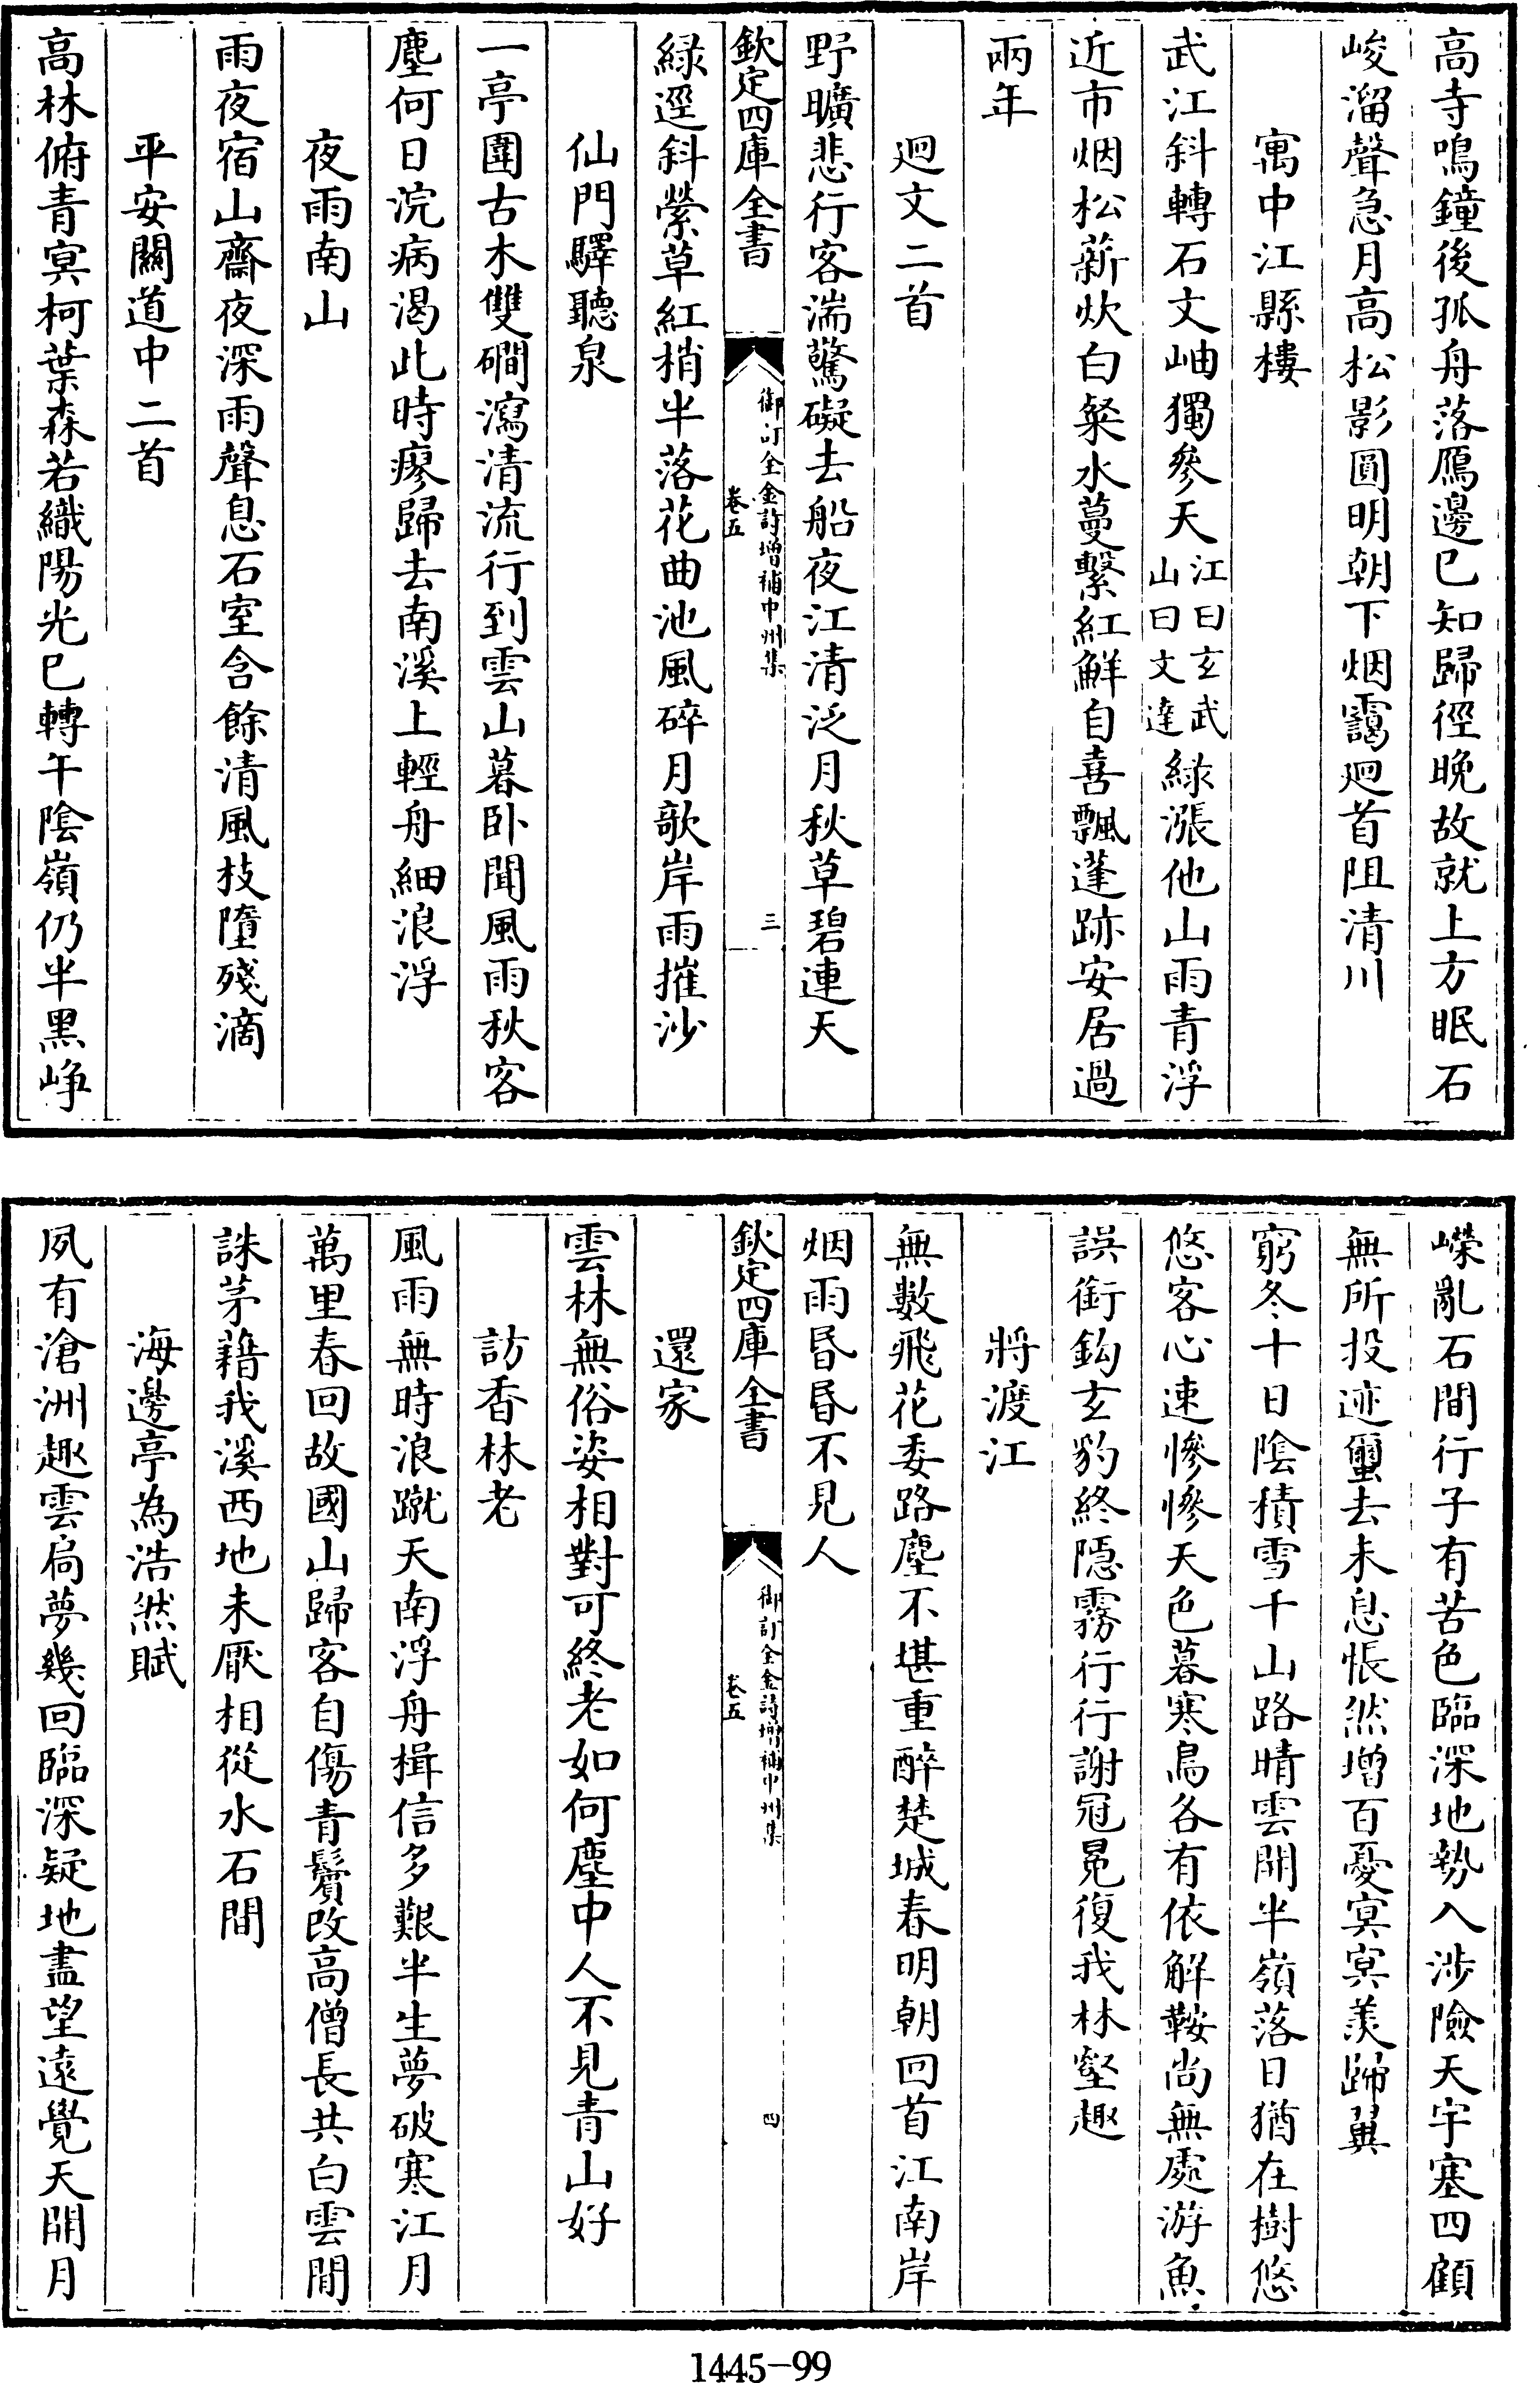 高寺鳴鐘後孤舟落鴈邊已知歸徑晚故就上方眠石
峻溜聲急月高松影圓明朝下烟靄廻首阻清川
寓中江縣樓
武江斜轉石文岫獨參天江曰玄武山曰文達綠漲他山雨青浮
近市烟松薪炊白粲水蔓繫紅鮮自喜飄蓬跡安居過
兩年
廻文二首
野曠悲行客湍驚礙去船夜江清泛月秋草碧連天
欽定四庫全書
御訂全金詩增補中州集
卷五
三
綠逕斜縈草紅梢半落花曲池風碎月歌岸雨摧沙
仙門驛聽泉
一亭圍古木雙磵瀉清流行到雲山暮卧聞風雨秋客
塵何日浣病渴此時瘳歸去南溪上輕舟細浪浮
夜雨南山
雨夜宿山齋夜深雨聲息石室含餘清風枝墮殘滴
平安關道中二首
高林俯青冥柯葉森若織陽光巳轉午陰嶺仍半黑崢
嶸亂石間行子有苦色臨深地勢入涉險天宇塞四顧
無所投迹璽去未息悵然增百憂冥冥羨歸翼
窮冬十日陰積雪千山路晴雲開半嶺落日猶在樹悠
悠客心速慘慘天色暮寒鳥各有依解鞍尚無處游魚
誤銜鈎玄豹終隱霧行行謝冠冕復我林壑趣
將渡江
無數飛花委路塵不堪重醉楚城春明朝回首江南岸
烟雨昏昏不見人
欽定四庫全書
御訂全金詩增補中州集
卷五
四
還家
雲林無俗姿相對可終老如何塵中人不見青山好
訪香林老
風雨無時浪蹴天南浮舟楫信多艱半生夢破寒江月
萬里春回故國山歸客自傷青鬢改高僧長共白雲閒
誅茅藉我溪西地未厭相從水石間
海邊亭為浩然賦
夙有滄洲趣雲扃夢幾回臨深疑地盡望遠覺天開月
1445-99